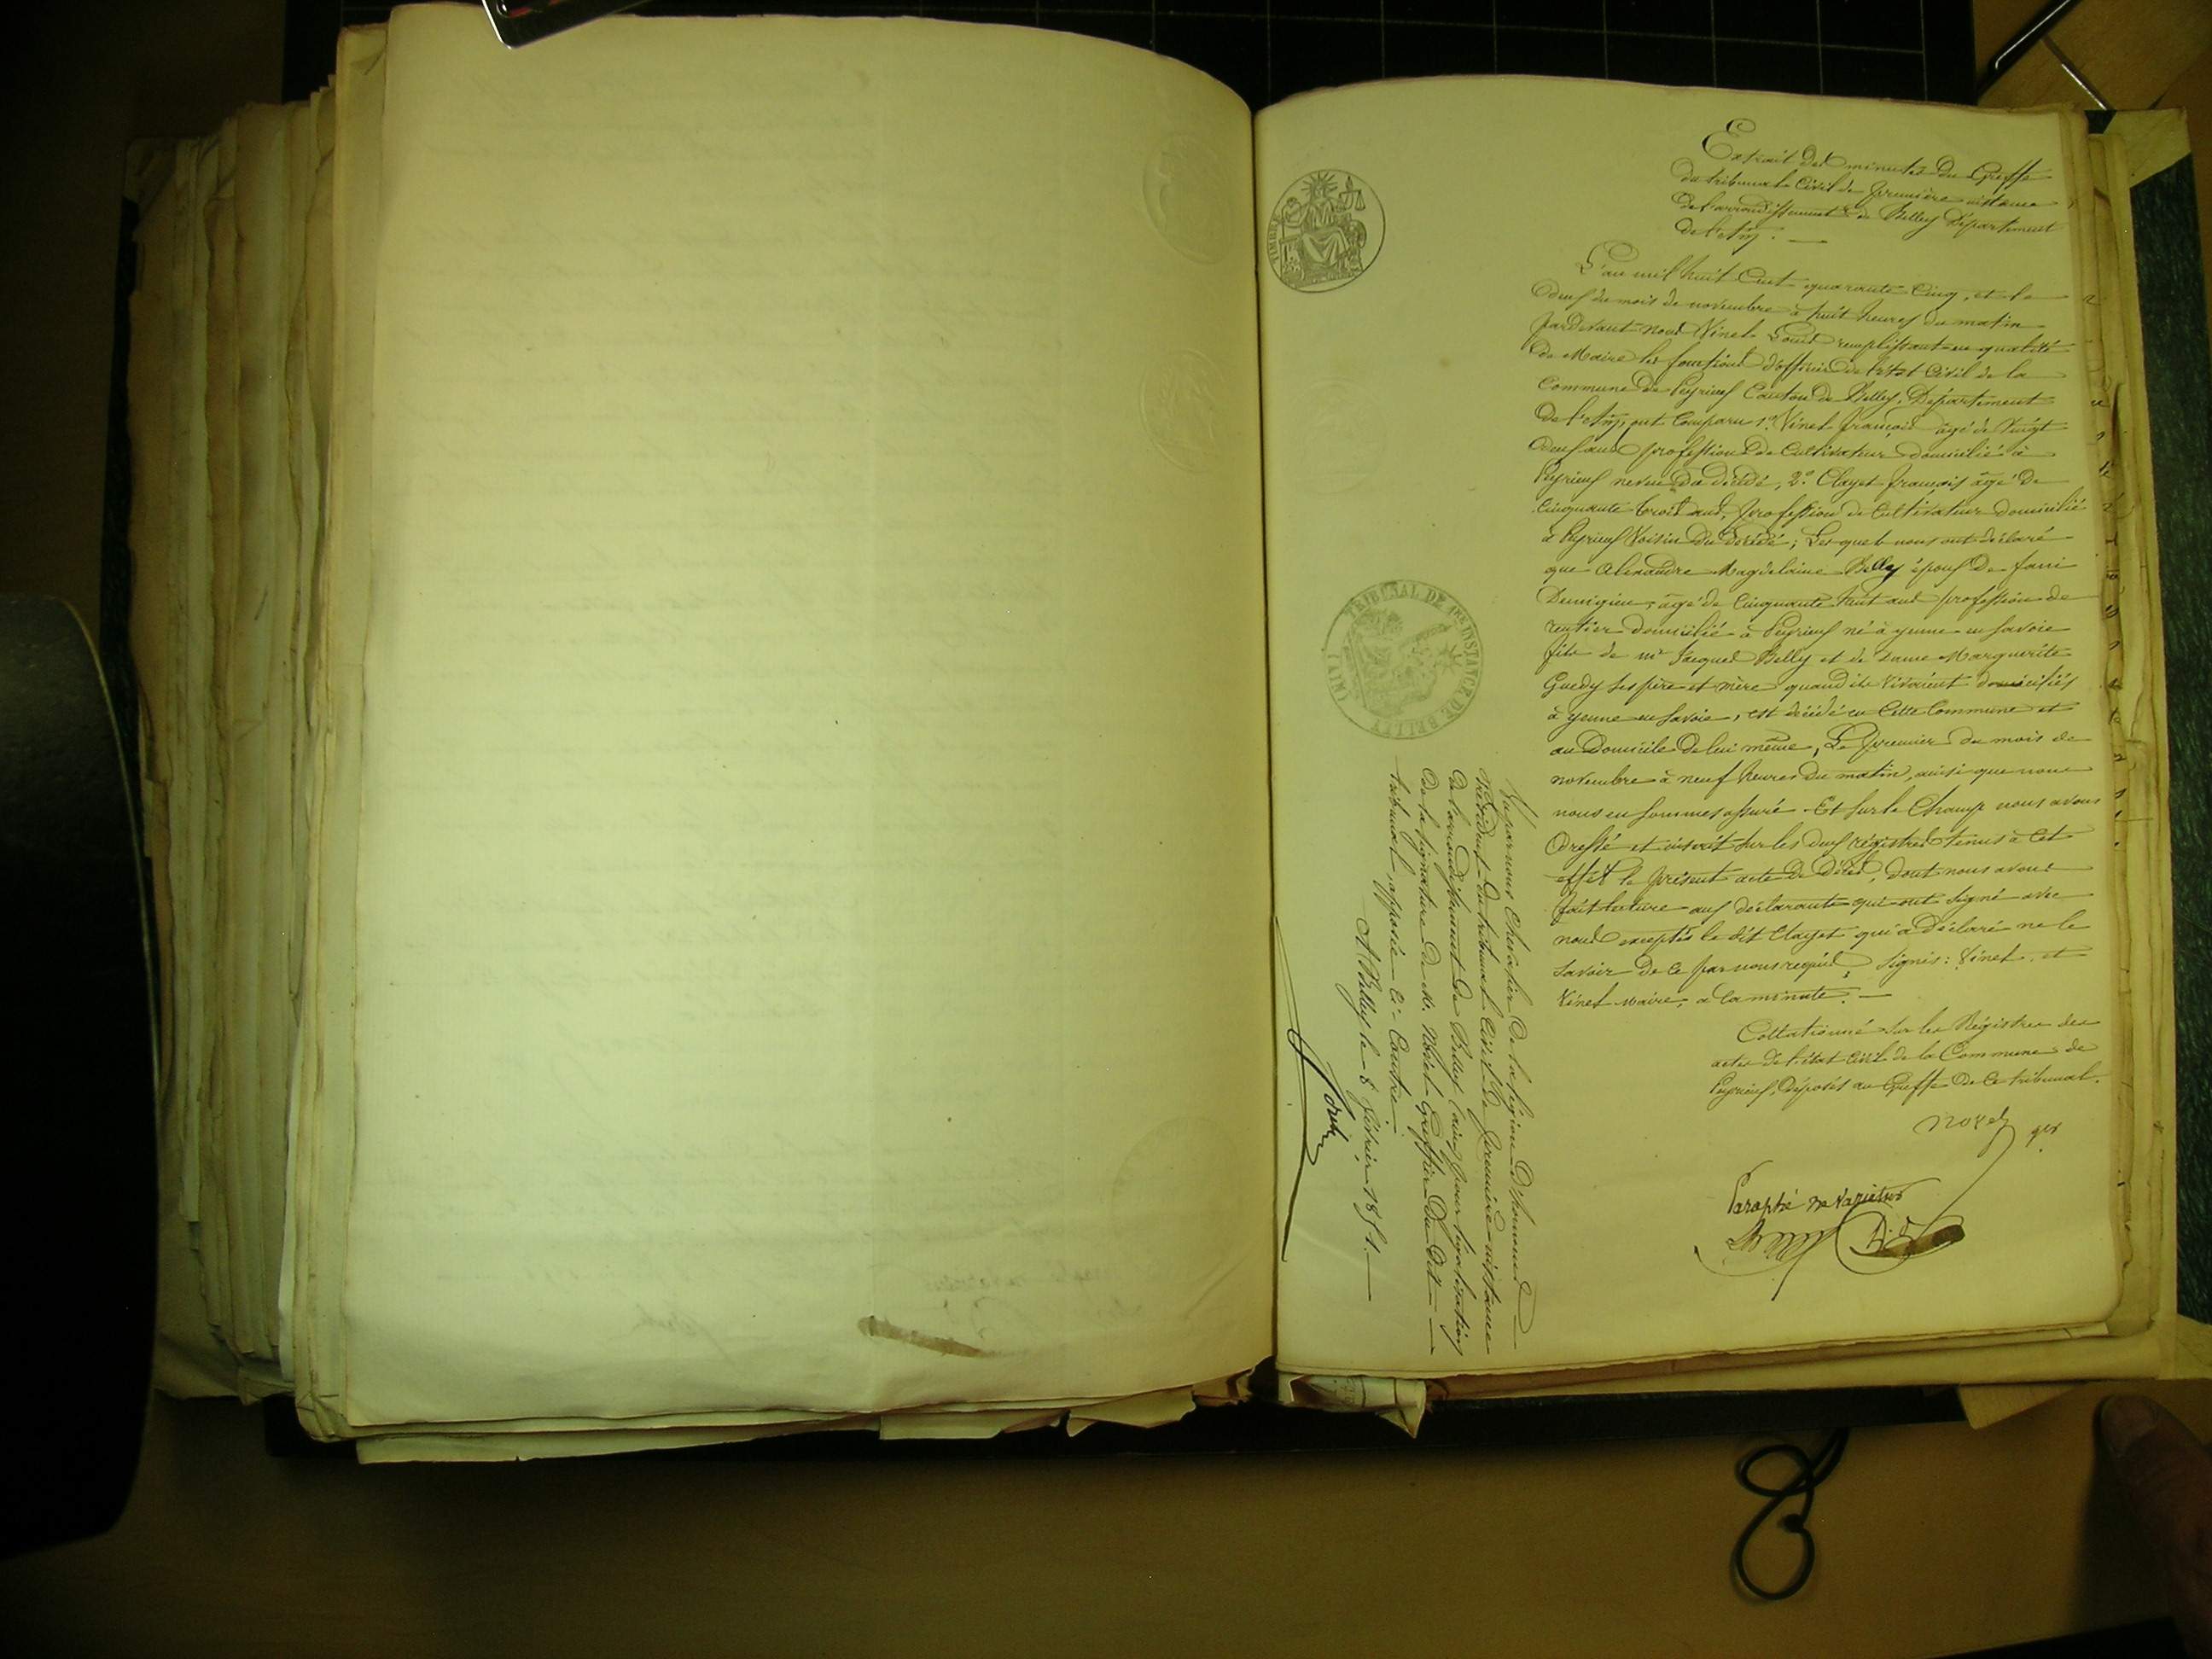 Extrait des minutes du Greffe
du tribunal Civil de première instance
de l'arrondissement de Belley Département
de l'Ain. —
L'an mil huit Cent quarante Cinq, et le
deux du mois de novembre à huit heures du matin
pardevant nous Vinet Louis remplissant en qualité
de Maire les fonctions d'officier de l'état Civil de la
Commune de Peyrieux Canton de Belley, Département
de l'Ain, ont Comparu 1° Vinet françois âgé de Vingt
deux ans profession de Cultivateur domicilié à
Peyrieux neveu du décédé, 2° Clayet françois âgé de
Cinquante trois ans, profession de Cultivateur domicilié
à Peyrieux Voisin du décédé; Lesquels nous ont déclaré
que Alexandre Magdelaine Belly époux de fani
Demigieu, âgé de Cinquante huit ans profession de
rentier domicilié à Peyrieux né à yenne en Savoie
fils de mr Jacques Belly et de dame Marguerite
Guedy ses père et mère quand ils vivaient domiciliés
à yenne en Savoie, est décédé en Cette Commune et
au Domicile de lui même, Le premier du mois de
novembre à neuf heures du matin, ainsi que nous
nous en sommes assuré. Et sur le Champ nous avons
dressé et inscrit sur les deux régistres tenus à Cet
effet le présent acte de Décès, dont nous avons
fait lecture aux déclarants qui ont signé avec
nous excepté le dit Clayet qui a Déclaré ne le
savoir de Ce par nous requis, signés: Vinet, et
Vinet maire, a la minute. —
Collationné sur les Régistres des
actes de l'état Civil de la Commune de
Peyrieux, déposés au Greffe de Ce tribunal.
Noyel grs
Paraphé ne varietur
TIMBRE
TRIBUNAL DE 1RE INSTANCE DE BELLEY (AIN)
Vu par nous Chevalier de la légion d'honneur
Président du tribunal Civil de première instance
de l'arrondissement de Belley (ain) pour légalisation
de la signature de M. Noyel Greffier du dit
tribunal, apposée Ci-Contre
A Belley le 8 février 1851. —